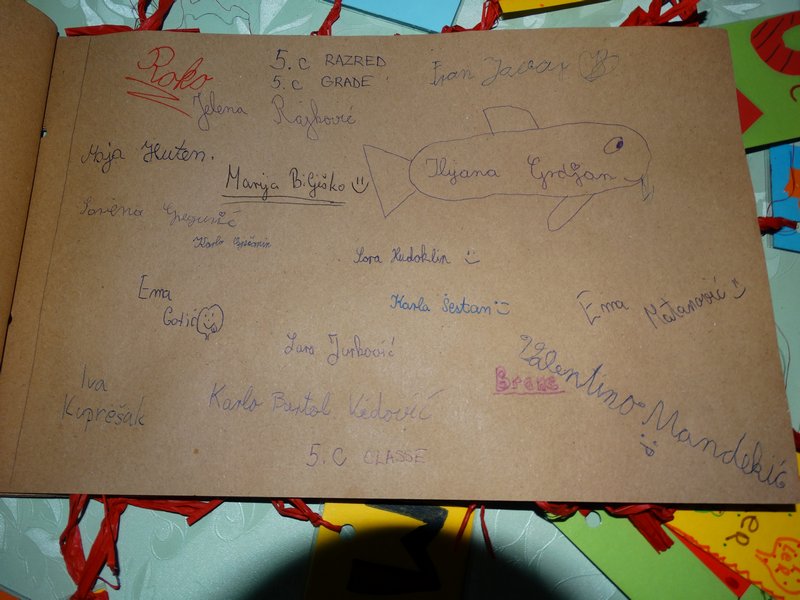 Roko
5.c RAZRED
5.c GRADE
Fran Javar
Jelena Rajković
Maja Huten.
Marija Biljеško
Ilijana Grdjan
Lorena Gregurić
Karlo
Lora Hudoklin
Ema
Gotić
Karla Šestan
Ema Matanović
Lara Jurković
Valentino Mandekić
Brene
Iva
Kuprešak
Karlo Bartol Kedović
5.C CLASSE